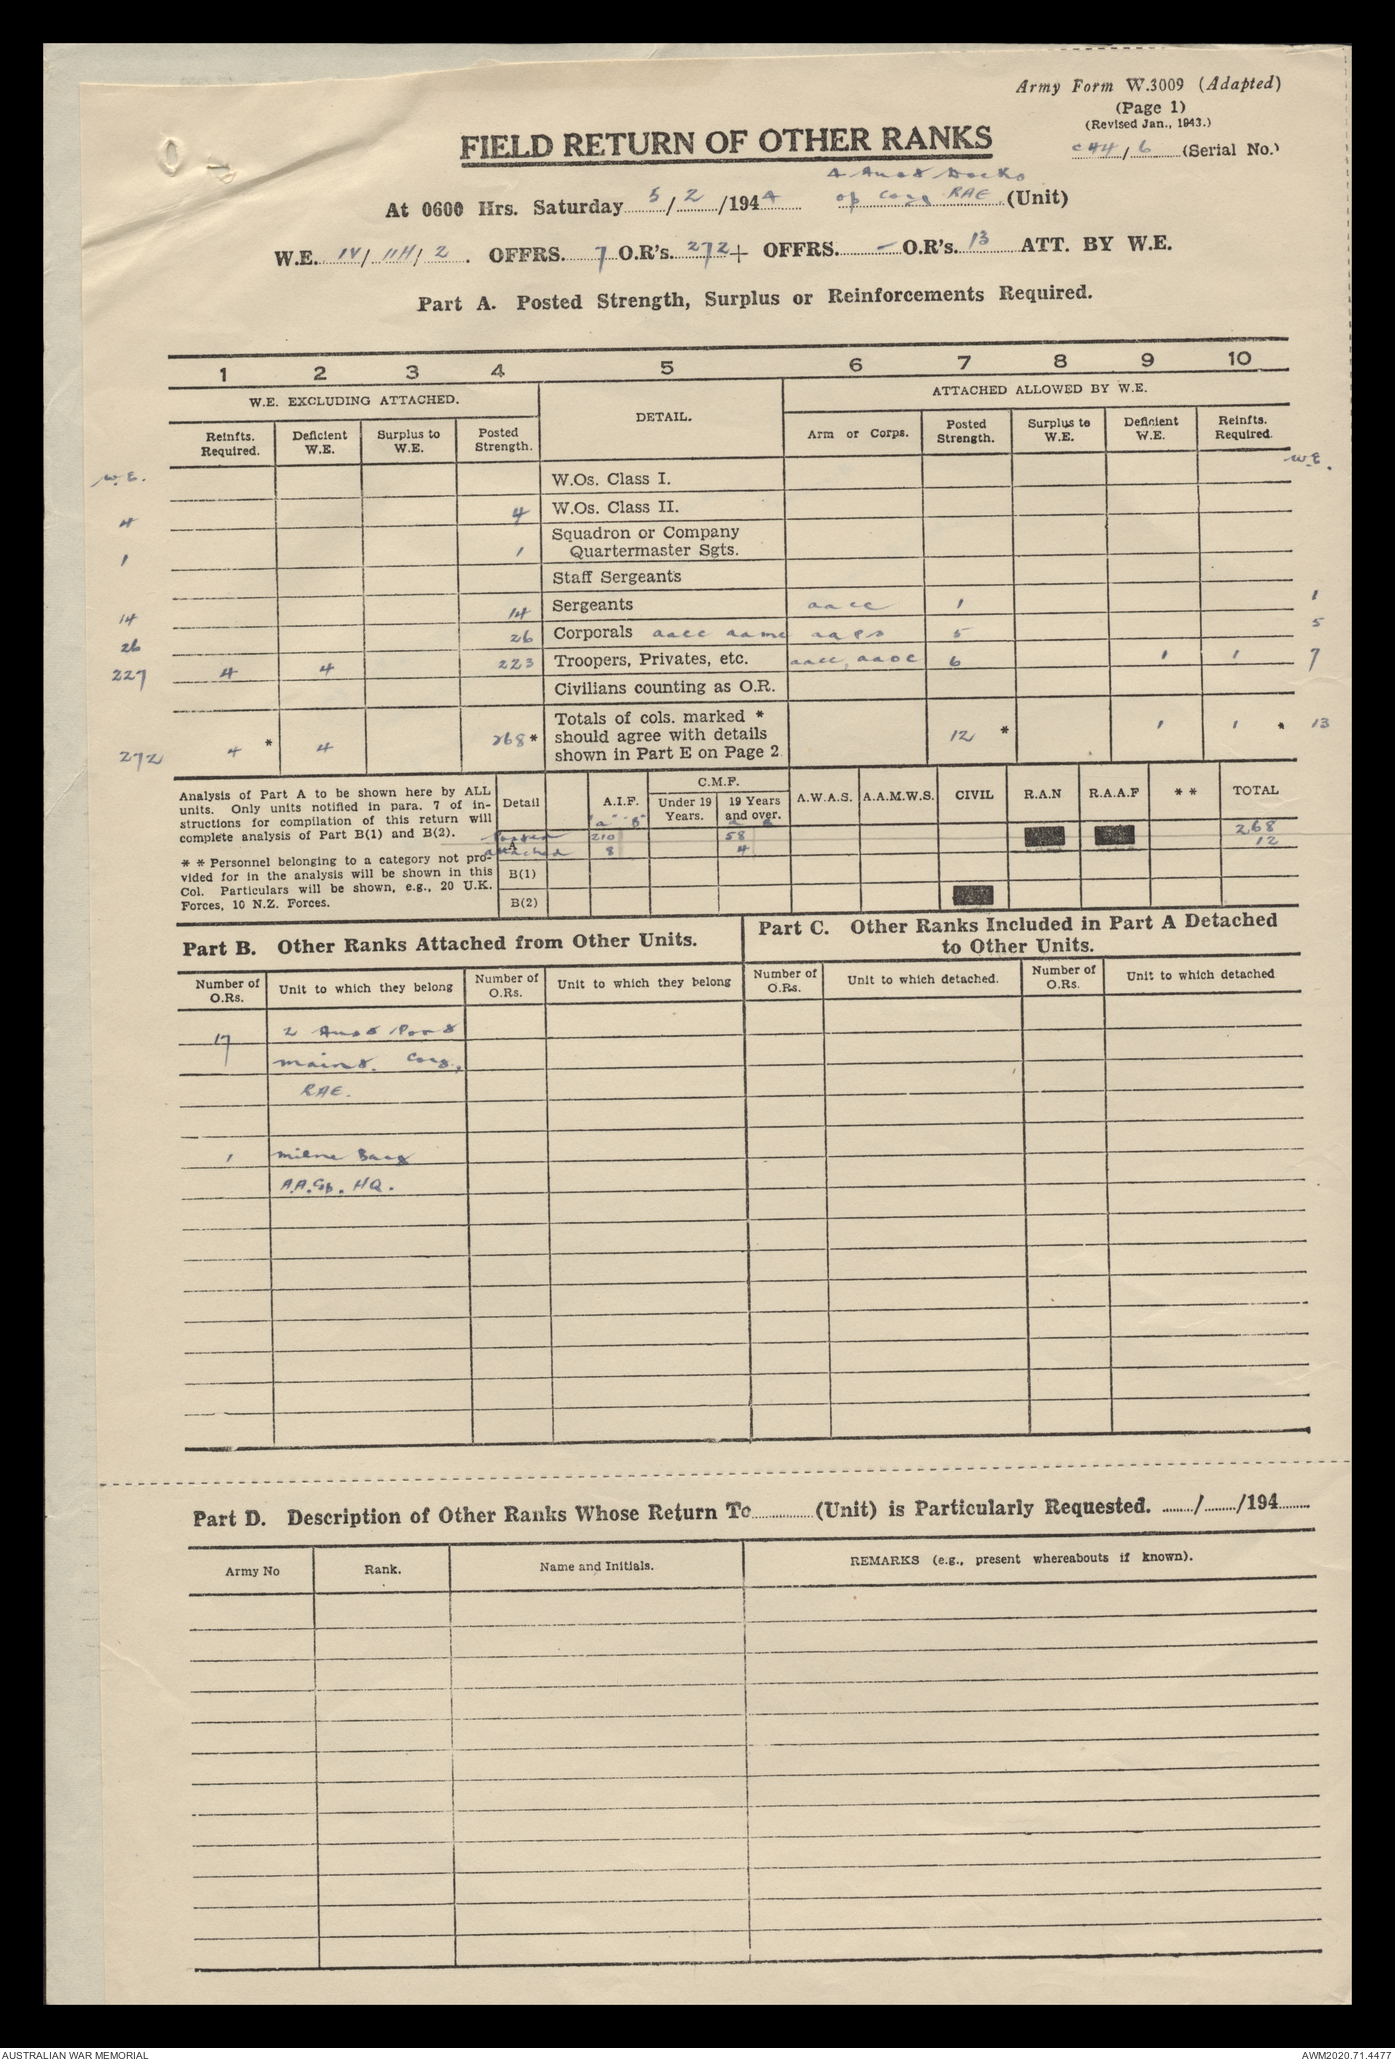 Army Form W.3009 (Adapted)
(Page 1)
(Revised Jan., 1943.)
/ 6 (Serial No.)
FIELD RETURN OF OTHER RANKS
4 Aust Docks
At 0600 Hrs. Saturday 5/2/1944 op Coy RAE (Unit)
W.E. IV/ 11H/ 2. OFFRS. 7 O.R's. 272 + OFFRS. – O.R's. 13 ATT. BY W.E.
Part A. Posted Strength, Surplus or Reinforcements Required.
1 2 3 4 5 6 7 8 9 10
W.E. EXCLUDING ATTACHED. DETAIL. ATTACHED ALLOWED BY W.E.
Reinfts. Required. Deficient W.E. Surplus to W.E. Posted Strength. Arm or Corps. Posted Strength. Surplus to W.E. Deficient W.E. Reinfts. Required.
W.E. W.Os. Class I. W.E.
4 4 W.Os. Class II.
1 1 Squadron or Company
Quartermaster Sgts.
Staff Sergeants
14 14 Sergeants aacc 1 1
26 26 Corporals aacc aamc aaps 5 5
227 4 4 223 Troopers, Privates, etc. aacc, aaoc 6 1 1 7
Civilians counting as O.R.
272 4 * 4 268 * Totals of cols. marked *
should agree with details
shown in Part E on Page 2 12 * 1 1 * 13
Analysis of Part A to be shown here by ALL
units. Only units notified in para. 7 of in-
structions for compilation of this return will
complete analysis of Part B(1) and B(2).
* * Personnel belonging to a category not pro-
vided for in the analysis will be shown in this
Col. Particulars will be shown, e.g., 20 U.K.
Forces, 10 N.Z. Forces.
Detail A.I.F. C.M.F. Under 19 Years. 19 Years and over. A.W.A.S. A.A.M.W.S. CIVIL R.A.N R.A.A.F * * TOTAL
Posted 210 58 268
A
attached 8 4 12
B(1)
B(2)
Part B. Other Ranks Attached from Other Units.
Part C. Other Ranks Included in Part A Detached
to Other Units.
Number of O.Rs. Unit to which they belong Number of O.Rs. Unit to which they belong Number of O.Rs. Unit to which detached. Number of O.Rs. Unit to which detached
17 2 Aust Port
maint. Coy.,
RAE.
1 milne Bay
A.A.Gp. HQ.
Part D. Description of Other Ranks Whose Return To (Unit) is Particularly Requested. / /194
Army No Rank. Name and Initials. REMARKS (e.g., present whereabouts if known).
AUSTRALIAN WAR MEMORIAL AWM2020.71.4477